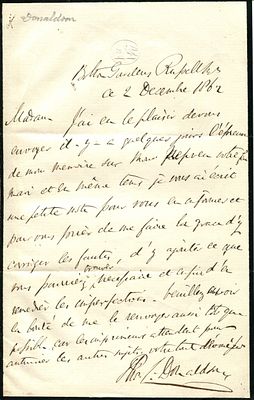 Donaldson
Bolton Gardens Russell Sq
ce 2 Decembre 1862
Madame J'ai eu le plaisir de vous
envoyer il-y-a quelques jours l'épreuve
de mon memoire sur feu votre
mari et en même tems je vous ai écrit
une petite note pour vous en informer et
pour vous prier de me faire la grace d'y
corriger les fautes, d'y ajouter ce que
vous pourriez trouver necessaire et afin d'en
remedier les imperfections. veuillez avoir
la bonté de me le renvoyer aussi tôt que
possible car les imprimeurs attendent pour
les autres sujets, votre tout
Thos. L. Donaldson